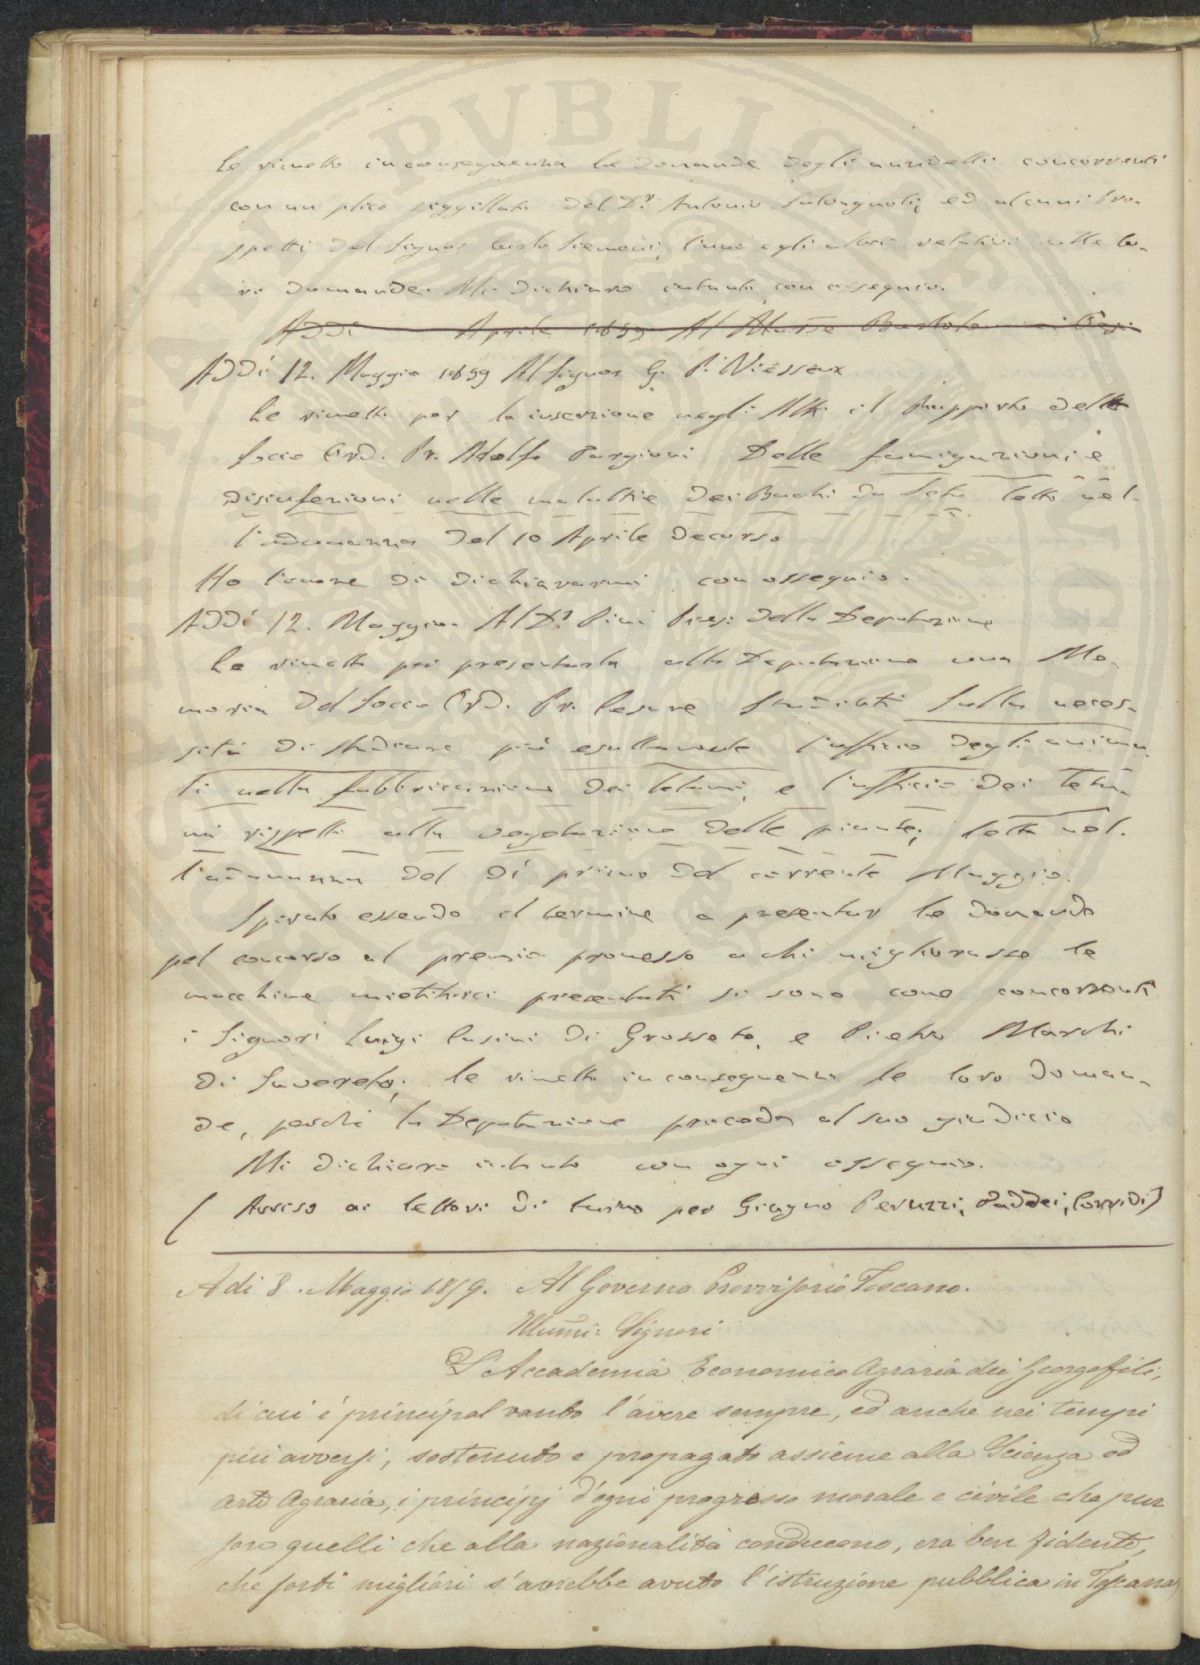 Le rimetto in conseguenza le domande degli anzidetti concorrenti
con un plico siggillato del D.r Antonio Salvagnoli, ed alcuni Pro-
spetti del Signor Carlo Siemoni, l'uno e gli altri relativi alle lo-
ro domande. Mi dichiaro intanto con ossequio.
Addì Aprile 1859 Al
Addì 12. Maggio 1859 Al Signor G. P. Viesseux
Le rimetto per la inserzione negli Atti il Rapporto del
Socio Ord. Pr. Adolfo Targioni Delle fumigazioni e
disinfezioni nelle malattie dei Bachi da Seta letto nel-
l'adunanza del 10 Aprile decorso
Ho l'onore di dichiararmi con ossequio.
Addì 12. Maggio. Al D.r Pini Presi: della Deputazione
Le rimetto per presentarla alla Deputazione una Me-
moria del Socio Ord. Pr. Cesare Studiati Sulla neces-
sità di studiare più esattamente l'ufficio degli anima-
li nella fabbricazione dei letami, e l'ufficio dei leta-
mi rispetto alla vegetazione delle piante; letta nel-
l'adunanza del dì primo del corrente Maggio.
Spirato essendo il termine a presentar le domande
pel concorso al premio promesso a chi migliorasse le
macchine mietitrici presentati si sono come concorrenti
i Signori Luigi Casini di Grosseto, e Pietro Marchi
di Suvereto; le rimetto in conseguenza le loro doman-
de, perché la Deputazione proceda al suo giudicio
Mi dichiaro intanto con ogni ossequio.
( Avviso ai lettori di turno per Giugno Peruzzi, Taddei, Corridi)
A dì 8. Maggio 1859. Al Governo Provvisorio Toscano.
Illumi: Signori
L'Accademia Economico Agraria dei Georgofili,
di cui é principal vanto l'avere sempre, ed anche nei tempi
più avversi, sostenuto e propagato assieme alla Scienza ed
arte Agraria, i principj d'ogni progresso morale e civile che pur
sono quelli che alla nazionalità conducono, era ben fidente,
che sorti migliori s'avrebbe avuto l'istruzione pubblica in Toscana,